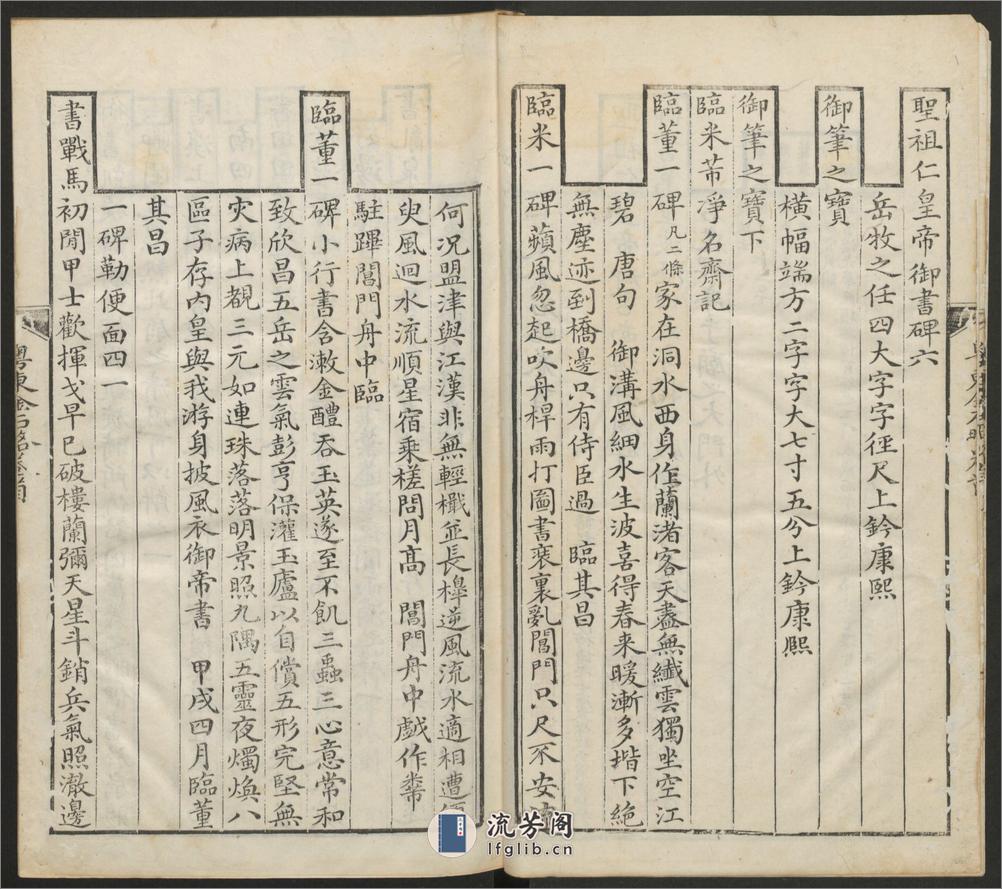 聖祖仁皇帝御書碑六
岳牧之任四大字字徑尺上鈐康熙
御筆之寶
橫幅端方二字字大七寸五分上鈐康熙
御筆之寶下
臨米芾淨名齋記
臨董一碑凡二條家在洞水西身作蘭渚客天盡無纖雲獨坐空江
碧 唐句 御溝風細水生波喜得春来暖漸多堦下絶
無塵迹到橋邊只有侍臣過 臨其昌
臨米一碑蘋風忽起吹舟桿雨打圖書裹裏亂閶門只尺不安流
何况盟津與江漢非無輕檝並長櫸逆風流水適相遭
臾風迴水流順星宿乘槎問月高 閶門舟中戯作黻
駐蹕閶門舟中臨
臨董一碑小行書含漱金醴吞玉英遂至不飢三蟲三心意常和
致欣昌五岳之雲氣彭亨保灌玉廬以自償五形完堅無
灾病上覩三元如連珠落落明景照九隅五靈夜燭煥八
區子存内皇與我游身披風衣御帝書 甲戌四月臨董
其昌
一碑勒便面四一
書戰馬初閒甲士歡揮戈早已破樓蘭彌天星斗銷兵氣照澈邊
粤東金石略卷首
流芳阁
lfglib.cn